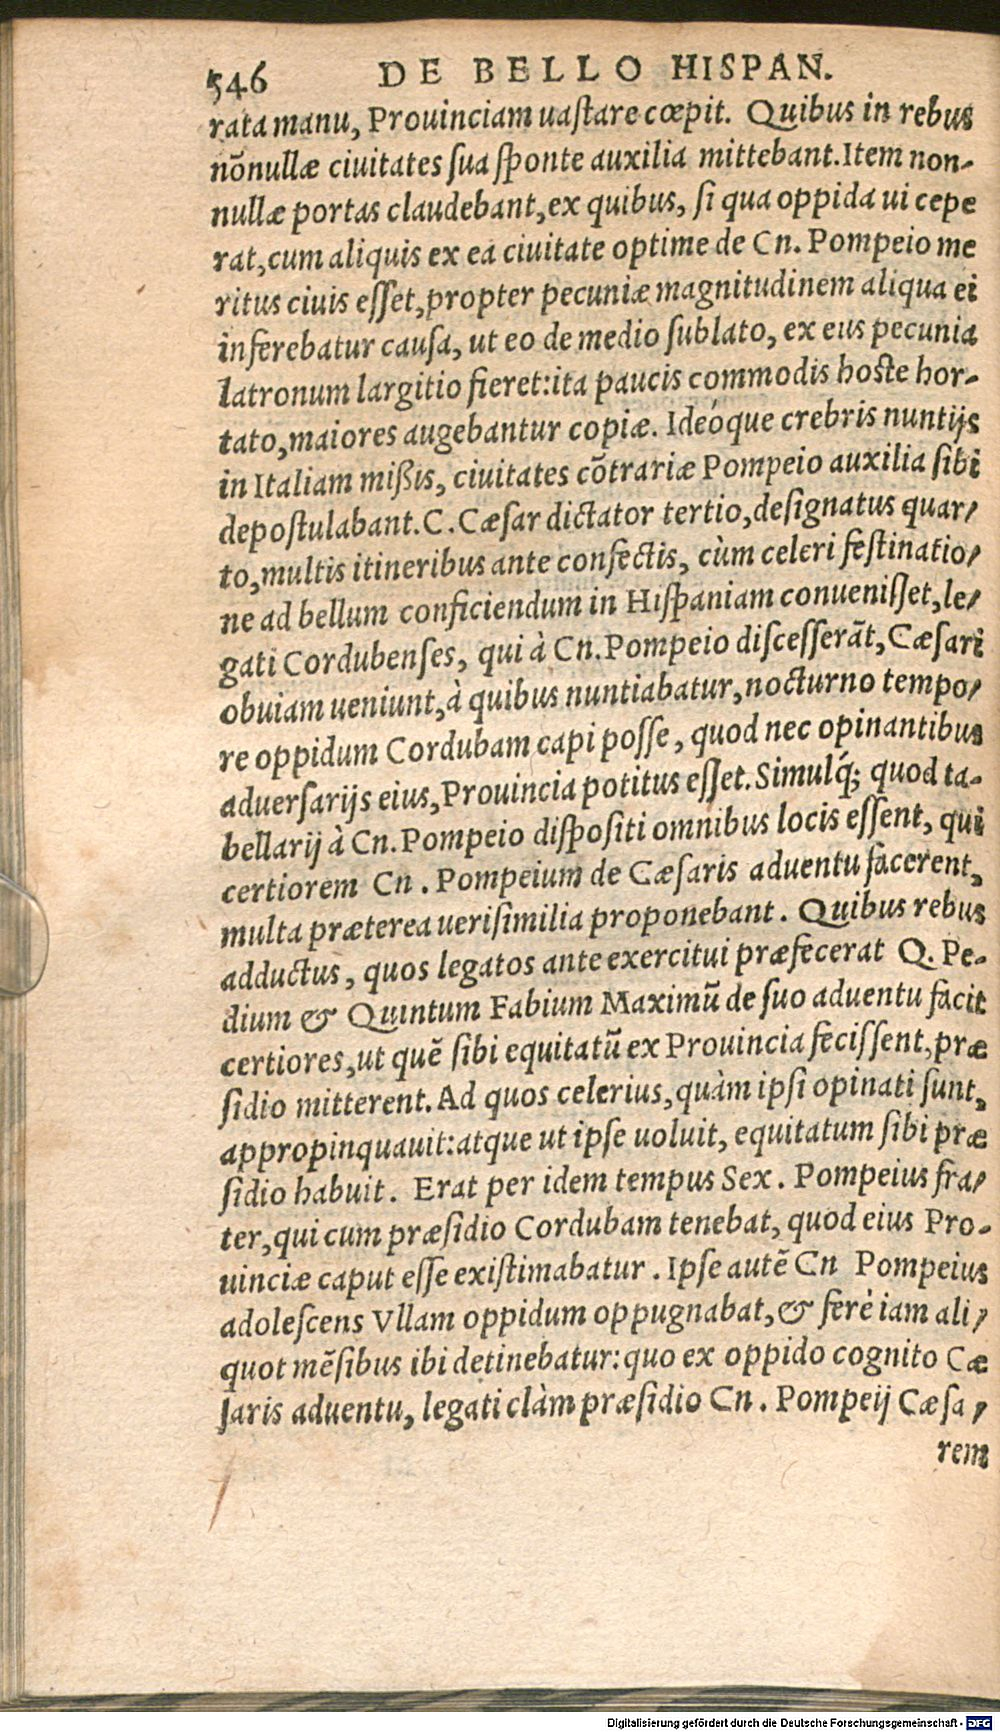 546 DE BELLO HISPAN.
rata manu, Prouinciam uaſtare cœpit. Quibus in rebus
nõnullæ ciuitates ſua ſponte auxilia mittebant. Item non-
nullæ portas claudebant, ex quibus, ſi qua oppida ui cepe
rat, cum aliquis ex ea ciuitate optime de Cn. Pompeio me
ritus ciuis eſſet, propter pecuniæ magnitudinem aliqua ei
inferebatur cauſa, ut eo de medio ſublato, ex eius pecunia
latronum largitio fieret: ita paucis commodis hoſte hor-
tato, maiores augebantur copiæ. Ideóque crebris nuntijs
in Italiam mißis, ciuitates cõtrariæ Pompeio auxilia ſibi
depoſtulabant. C. Cæſar dictator tertio, deſignatus quar-
to, multis itineribus ante confectis, cùm celeri feſtinatio-
ne ad bellum conficiendum in Hiſpaniam conueniſſet, le-
gati Cordubenſes, qui à Cn. Pompeio diſceſſerãt, Cæſari
obuiam ueniunt, à quibus nuntiabatur, nocturno tempo-
re oppidum Cordubam capi poſſe, quod nec opinantibus
aduerſarijs eius, Prouincia potitus eſſet. Simulq́; quod ta-
bellarij à Cn. Pompeio diſpoſiti omnibus locis eſſent, qui
certiorem Cn. Pompeium de Cæſaris aduentu facerent,
multa præterea ueriſimilia proponebant. Quibus rebus
adductus, quos legatos ante exercitui præfecerat Q. Pe-
dium & Quintum Fabium Maximũ de ſuo aduentu facit
certiores, ut quẽ ſibi equitatũ ex Prouincia feciſſent, præ
ſidio mitterent. Ad quos celerius, quàm ipſi opinati ſunt,
appropinquauit: atque ut ipſe uoluit, equitatum ſibi præ
ſidio habuit. Erat per idem tempus Sex. Pompeius fra-
ter, qui cum præſidio Cordubam tenebat, quod eius Pro-
uinciæ caput eſſe exiſtimabatur. Ipſe autẽ Cn Pompeius
adoleſcens Vllam oppidum oppugnabat, & ferè iam ali-
quot mẽſibus ibi detinebatur: quo ex oppido cognito Cæ
ſaris aduentu, legati clàm præſidio Cn. Pompeij Cæſa-
rem
Digitalisierung gefördert durch die Deutsche Forschungsgemeinschaft - DFG